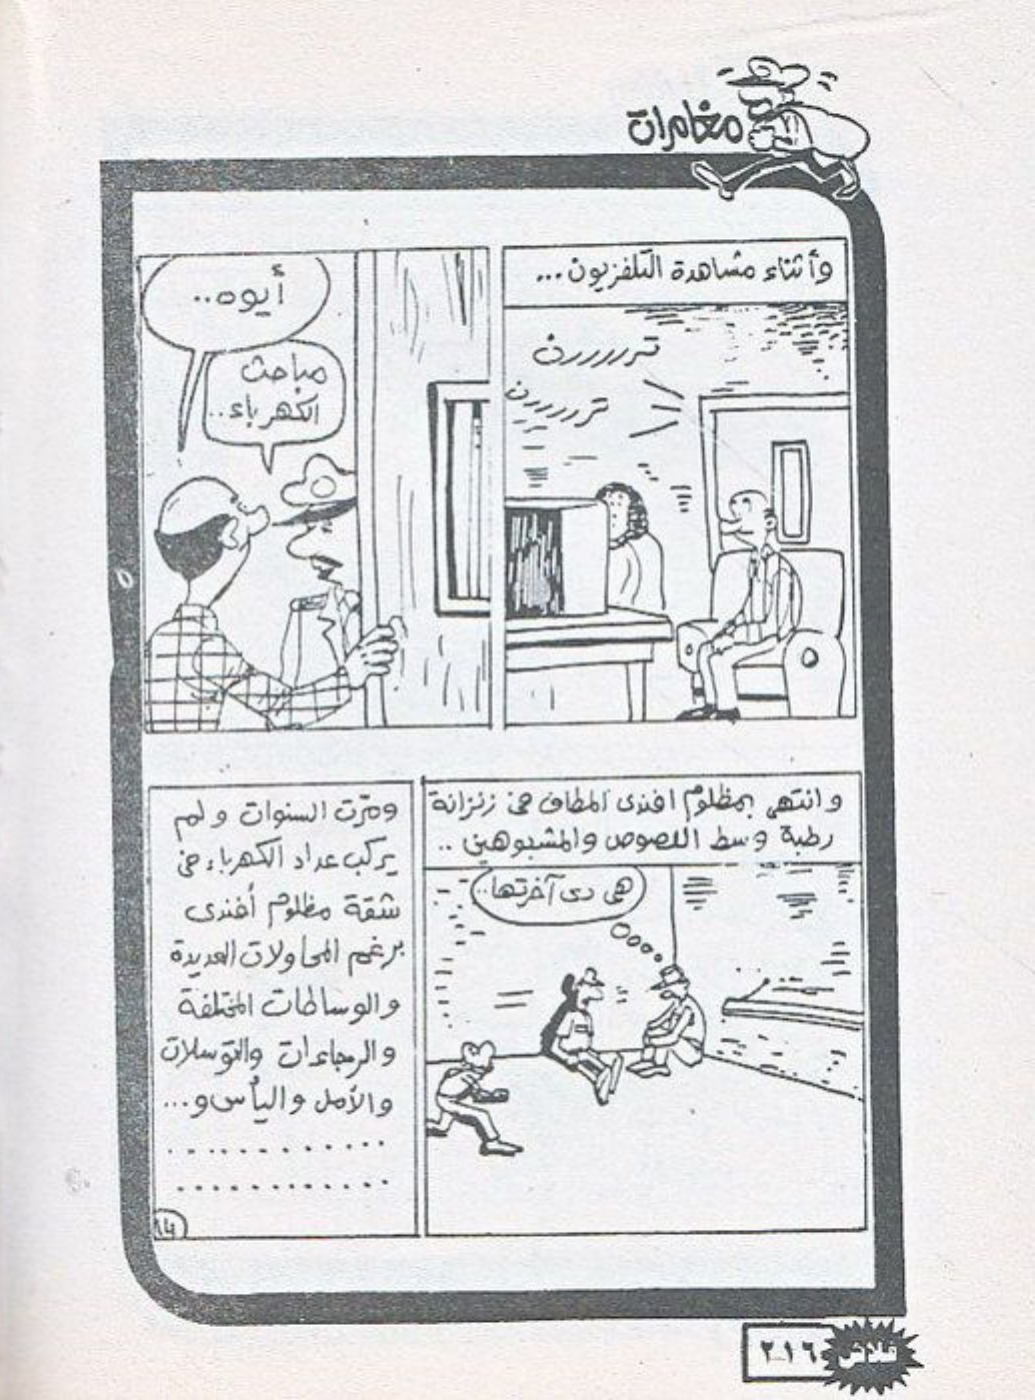 مغامرات
وأثناء مشاهدة التلفزيون...
تررررررن
تررررررن
أيوه..
مباحث
الكهرباء..
وانتهى بمظلوم افندى المطاف فى زنزانة
رطبة وسط اللصوص والمشبوهين ..
هى دى آخرتها..
ومرّت السنوات ولم
يركب عداد الكهرباء فى
شقة مظلوم أفندى
برغم المحاولات العديدة
والوساطات المختلفة
والرجاءات والتوسلات
والأمل واليأس و...
............
............
١٤
فلاش ٢١٦